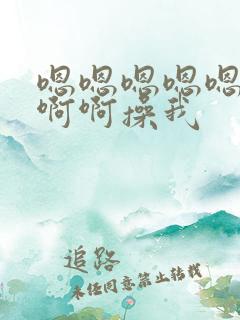 嗯嗯嗯嗯嗯
啊啊操我
追路
未经同意禁止转载